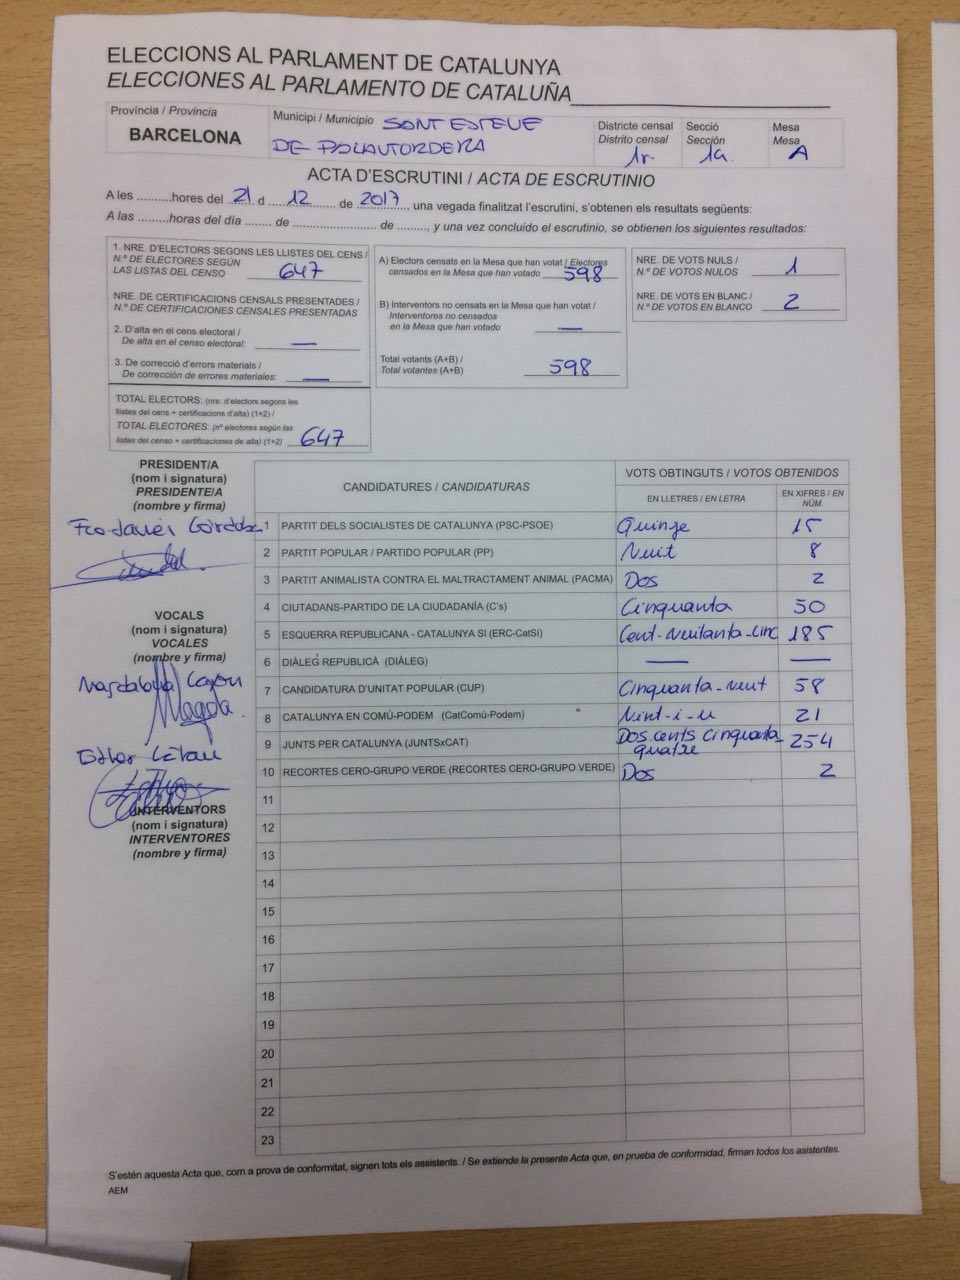 ELECCIONS AL PARLAMENT DE CATALUNYA
ELECCIONES AL PARLAMENTO DE CATALUÑA
Província / Provincia
BARCELONA
Municipi / Municipio SANT ESTEVE
DE PALAUTORDERA
Districte censal
Distrito censal
1r.
Secció
Sección
1a.
Mesa
Mesa
A
ACTA D'ESCRUTINI / ACTA DE ESCRUTINIO
A les .........hores del 21 d 12 de 2017, una vegada finalitzat l'escrutini, s'obtenen els resultats següents:
A las .........horas del día ....... de ........................ de ........, y una vez concluido el escrutinio, se obtienen los siguientes resultados:
1. NRE. D'ELECTORS SEGONS LES LLISTES DEL CENS /
N.º DE ELECTORES SEGÚN
LAS LISTAS DEL CENSO 647
NRE. DE CERTIFICACIONS CENSALS PRESENTADES /
N.º DE CERTIFICACIONES CENSALES PRESENTADAS
2. D'alta en el cens electoral /
De alta en el censo electoral: —
3. De correcció d'errors materials /
De corrección de errores materiales: —
TOTAL ELECTORS: (nre. d'electors segons les
llistes del cens + certificacions d'alta) (1+2) /
TOTAL ELECTORES: (nº electores según las
listas del censo + certificaciones de alta) (1+2) 647
A) Electors censats en la Mesa que han votat / Electores
censados en la Mesa que han votado 598
B) Interventors no censats en la Mesa que han votat /
Interventores no censados
en la Mesa que han votado —
Total votants (A+B) /
Total votantes (A+B) 598
NRE. DE VOTS NULS /
N.º DE VOTOS NULOS 1
NRE. DE VOTS EN BLANC /
N.º DE VOTOS EN BLANCO 2
PRESIDENT/A
(nom i signatura)
PRESIDENTE/A
(nombre y firma)
Fco Javier Córdoba
VOCALS
(nom i signatura)
VOCALES
(nombre y firma)
Magdalena
Magda
Esther
INTERVENTORS
(nom i signatura)
INTERVENTORES
(nombre y firma)
CANDIDATURES / CANDIDATURAS
VOTS OBTINGUTS / VOTOS OBTENIDOS
EN LLETRES / EN LETRA
EN XIFRES / EN NÚM.
1 PARTIT DELS SOCIALISTES DE CATALUNYA (PSC-PSOE) Quinze 15
2 PARTIT POPULAR / PARTIDO POPULAR (PP) Vuit 8
3 PARTIT ANIMALISTA CONTRA EL MALTRACTAMENT ANIMAL (PACMA) Dos 2
4 CIUTADANS-PARTIDO DE LA CIUDADANÍA (C's) Cinquanta 50
5 ESQUERRA REPUBLICANA - CATALUNYA SI (ERC-CatSí) Cent-vuitanta-cinc 185
6 DIÀLEG REPUBLICÀ (DIÀLEG) — —
7 CANDIDATURA D'UNITAT POPULAR (CUP) Cinquanta-vuit 58
8 CATALUNYA EN COMÚ-PODEM (CatComú-Podem) Vint-i-u 21
9 JUNTS PER CATALUNYA (JUNTSxCAT) Dos cents cinquanta-quatre 254
10 RECORTES CERO-GRUPO VERDE (RECORTES CERO-GRUPO VERDE) Dos 2
11
12
13
14
15
16
17
18
19
20
21
22
23
S'estén aquesta Acta que, com a prova de conformitat, signen tots els assistents. / Se extiende la presente Acta que, en prueba de conformidad, firman todos los asistentes.
AEM